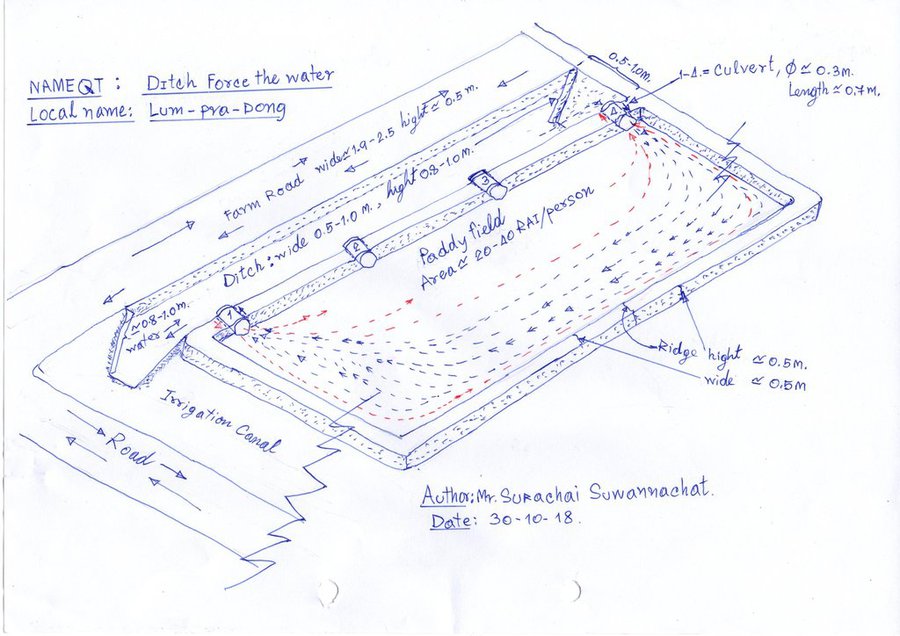 NAME QT : Ditch Force the water
Local name: Lum-pra-Dong
0.5-1.0m.
1-4.= Culvert, Ø ≃ 0.3m.
Length ≃ 0.7m.
Farm Road wide≃1.9-2.5 hight ≃ 0.5m.
Ditch: wide 0.5-1.0 m., hight 0.8-1.0m.
4
3
2
1
Paddy field
Area ≃ 20-40 RAI/person
≃0.8-1.0m.
water
Ridge hight ≃ 0.5m.
wide ≃ 0.5m
Irrigation Canal
Road
Author: Mr. Surachai Suwannachat.
Date: 30-10-18.